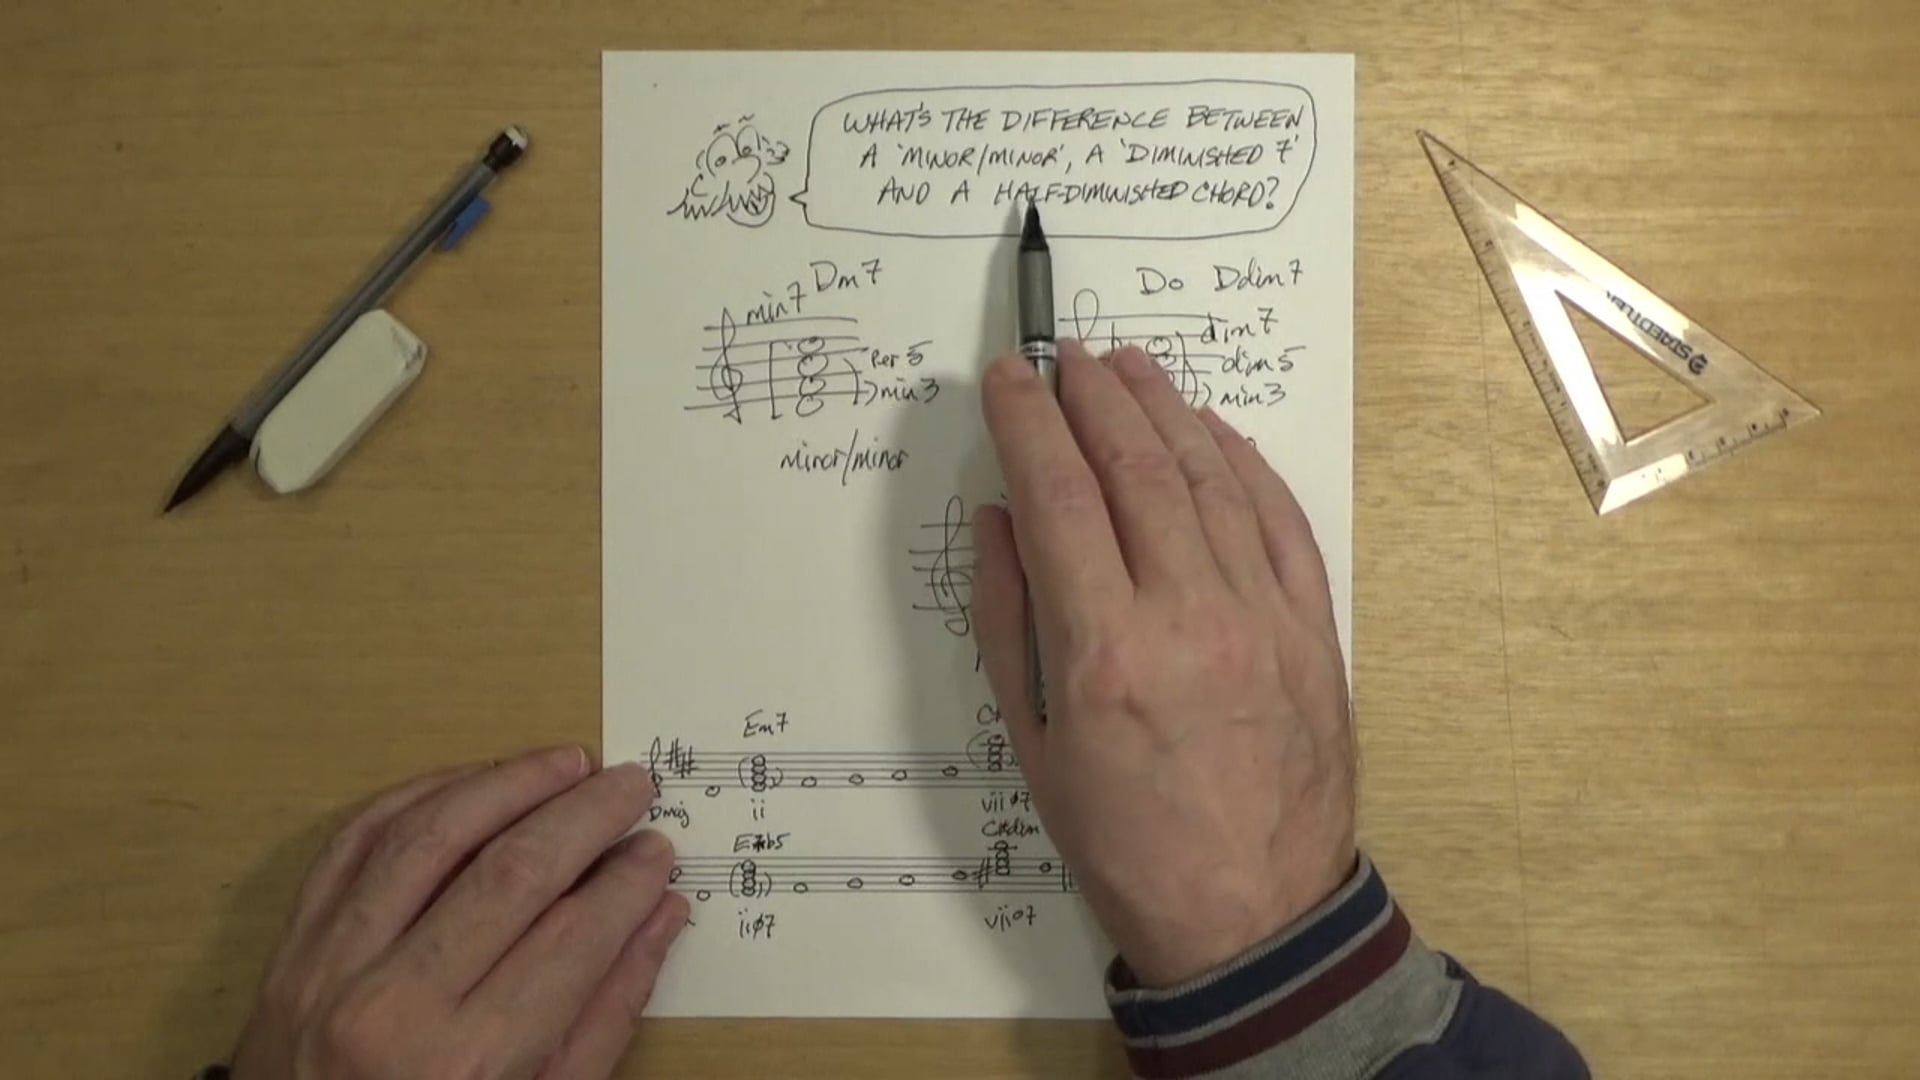 WHAT'S THE DIFFERENCE BETWEEN
A 'MINOR/MINOR', A 'DIMINISHED 7'
AND A HALF-DIMINISHED CHORD?
Dm7
min7
Per 5
min3
minor/minor
Do Ddim7
dim7
dim5
min3
STAEDTLER
Em7
Dmaj
ii
viiø7
C#dim
iiø7
viio7